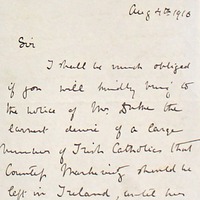 Aug 4th 1916
Sir
I shall be much obliged
if you will kindly bring to
the notice of Mr. Duke the
earnest desire of a large
number of Irish Catholics that
Countess Markievicz should be
left in Ireland, until her